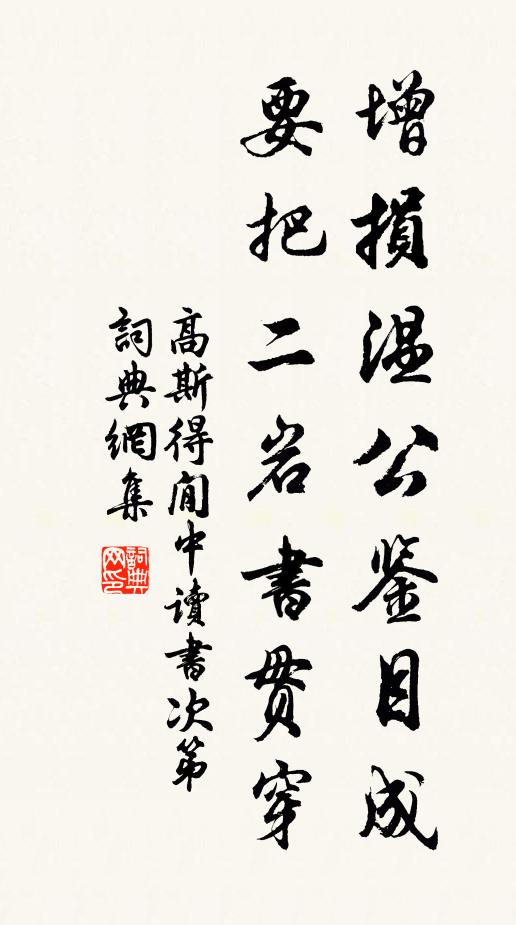 增損溫公鉴目成
要把二岩書貫穿
高斯得閒中讀書次第
詞典網集
詞典网印